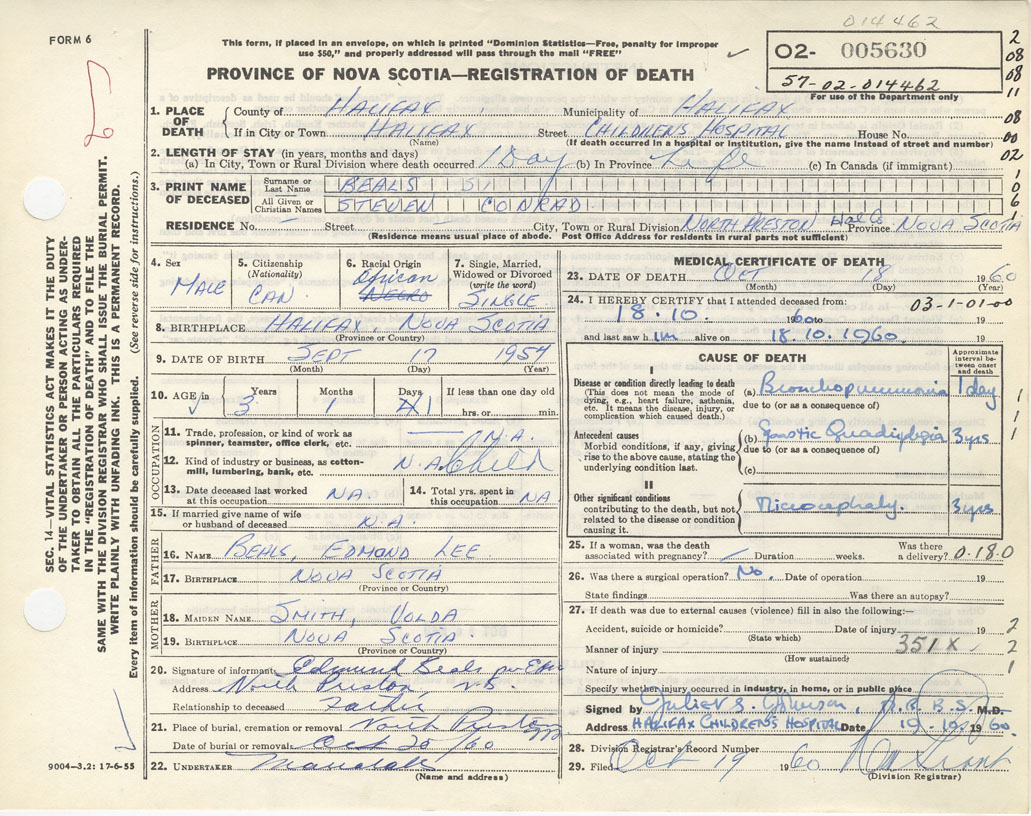 014462
FORM 6
This form, if placed in an envelope, on which is printed "Dominion Statistics—Free, penalty for improper
use $50," and properly addressed will pass through the mail "FREE"
O2- 005630
57-02-014462
For use of the Department only
2
08
08
11
08
00
02
1
0
6
1
PROVINCE OF NOVA SCOTIA—REGISTRATION OF DEATH
SEC. 14—VITAL STATISTICS ACT MAKES IT THE DUTY
OF THE UNDERTAKER OR PERSON ACTING AS UNDER-
TAKER TO OBTAIN ALL THE PARTICULARS REQUIRED
IN THE "REGISTRATION OF DEATH" AND TO FILE THE
SAME WITH THE DIVISION REGISTRAR WHO SHALL ISSUE THE BURIAL PERMIT.
WRITE PLAINLY WITH UNFADING INK. THIS IS A PERMANENT RECORD.
Every item of information should be carefully supplied. (See reverse side for instructions.)
1. PLACE OF DEATH
County of HALIFAX Municipality of HALIFAX
If in City or Town HALIFAX Street CHILDRENS HOSPITAL House No.
(Name) (If death occurred in a hospital or institution, give the name instead of street and number)
2. LENGTH OF STAY (in years, months and days)
(a) In City, Town or Rural Division where death occurred 1 Day (b) In Province Life (c) In Canada (if immigrant)
3. PRINT NAME OF DECEASED
Surname or Last Name BEALS 51
All Given or Christian Names STEVEN CONRAD
RESIDENCE No. — Street — City, Town or Rural Division NORTH PRESTON Hal Co Province NOVA SCOTIA
(Residence means usual place of abode. Post Office Address for residents in rural parts not sufficient)
4. Sex MALE
5. Citizenship (Nationality) CAN.
6. Racial Origin African NEGRO
7. Single, Married, Widowed or Divorced (write the word) SINGLE
8. BIRTHPLACE HALIFAX, NOVA SCOTIA
(Province or Country)
9. DATE OF BIRTH SEPT 17 1957
(Month) (Day) (Year)
10. AGE in Years 3 Months 1 Days 1 If less than one day old
hrs. or min.
OCCUPATION
11. Trade, profession, or kind of work as
spinner, teamster, office clerk, etc. N.A.
12. Kind of industry or business, as cotton-
mill, lumbering, bank, etc. N.A. Child
13. Date deceased last worked
at this occupation NA.
14. Total yrs. spent in
this occupation NA
15. If married give name of wife
or husband of deceased N.A.
FATHER
16. NAME BEALS, EDMOND LEE
17. BIRTHPLACE NOVA SCOTIA
(Province or Country)
MOTHER
18. MAIDEN NAME SMITH, VOLDA
19. BIRTHPLACE NOVA SCOTIA
(Province or Country)
20. Signature of informant Edmund Beals per
Address North Preston, N.S.
Relationship to deceased Father
21. Place of burial, cremation or removal North Preston
Date of burial or removal Oct 20/60
22. UNDERTAKER
(Name and address)
9004—3.2: 17-6-55
MEDICAL CERTIFICATE OF DEATH
23. DATE OF DEATH OCT 18 1960
(Month) (Day) (Year)
24. I HEREBY CERTIFY that I attended deceased from: 03-1-01-00
18.10. 1960 to 19
and last saw him alive on 18.10.1960. 19
CAUSE OF DEATH
Approximate interval between onset and death
I
Disease or condition directly leading to death
(This does not mean the mode of
dying, e.g., heart failure, asthenia,
etc. It means the disease, injury, or
complication which caused death.)
(a) Bronchopneumonia 1 day
due to (or as a consequence of)
Antecedent causes
Morbid conditions, if any, giving
rise to the above cause, stating the
underlying condition last.
(b) Spastic Quadriplegia 3 yrs
due to (or as a consequence of)
(c)
II
Other significant conditions
contributing to the death, but not
related to the disease or condition
causing it.
Microcephaly. 3 yrs
1
1
1
25. If a woman, was the death
associated with pregnancy? — Duration weeks. Was there
a delivery? 0.18.0
26. Was there a surgical operation? No. Date of operation 19
State findings Was there an autopsy?
27. If death was due to external causes (violence) fill in also the following:—
Accident, suicide or homicide? Date of injury 19 2
(State which)
Manner of injury 351X 2
(How sustained)
Nature of injury 1
Specify whether injury occurred in industry, in home, or in public place
Signed by Juliet S. M.B.B.S. M.D.
Address HALIFAX CHILDRENS HOSPITAL Date 19.10. 1960.
28. Division Registrar's Record Number
29. Filed Oct 19 1960
(Division Registrar)